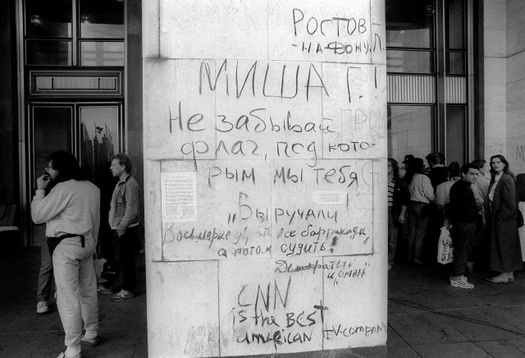 РОСТОВ
-НА-ДОНУ
МИША Г.!
Не забывай
флаг, под кото-
рым мы тебя
"Выручали
Восьмерке убрать все баррикады
а потом судить!
Демократы
CNN
IS the BEST
american TV-COMPANY